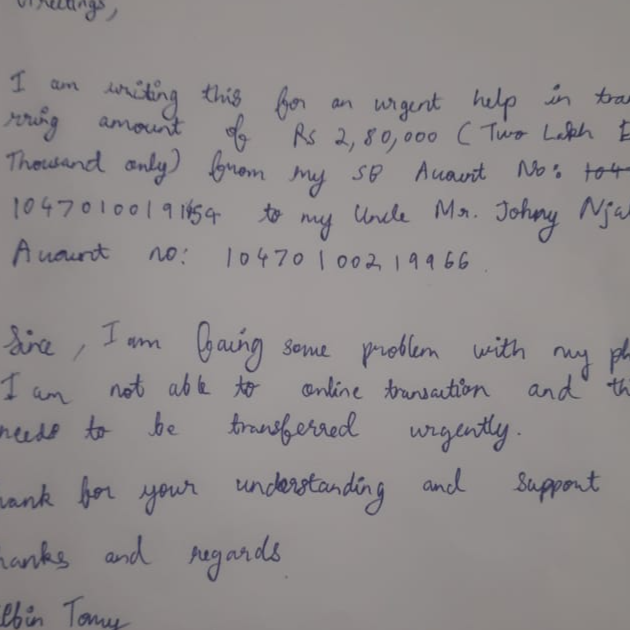 Greetings,
I am writing this for an urgent help in tra
rring amount of Rs 2,80,000 (Two Lakh E
Thousand only) from my SB Account No: 104
10470100191454 to my Uncle Mr. Johny Nja
Account no: 10470100219966
Since, I am facing some problem with my ph
I am not able to online transaction and th
needs to be transferred urgently.
hank for your understanding and support
hanks and regards
lbin Tomy